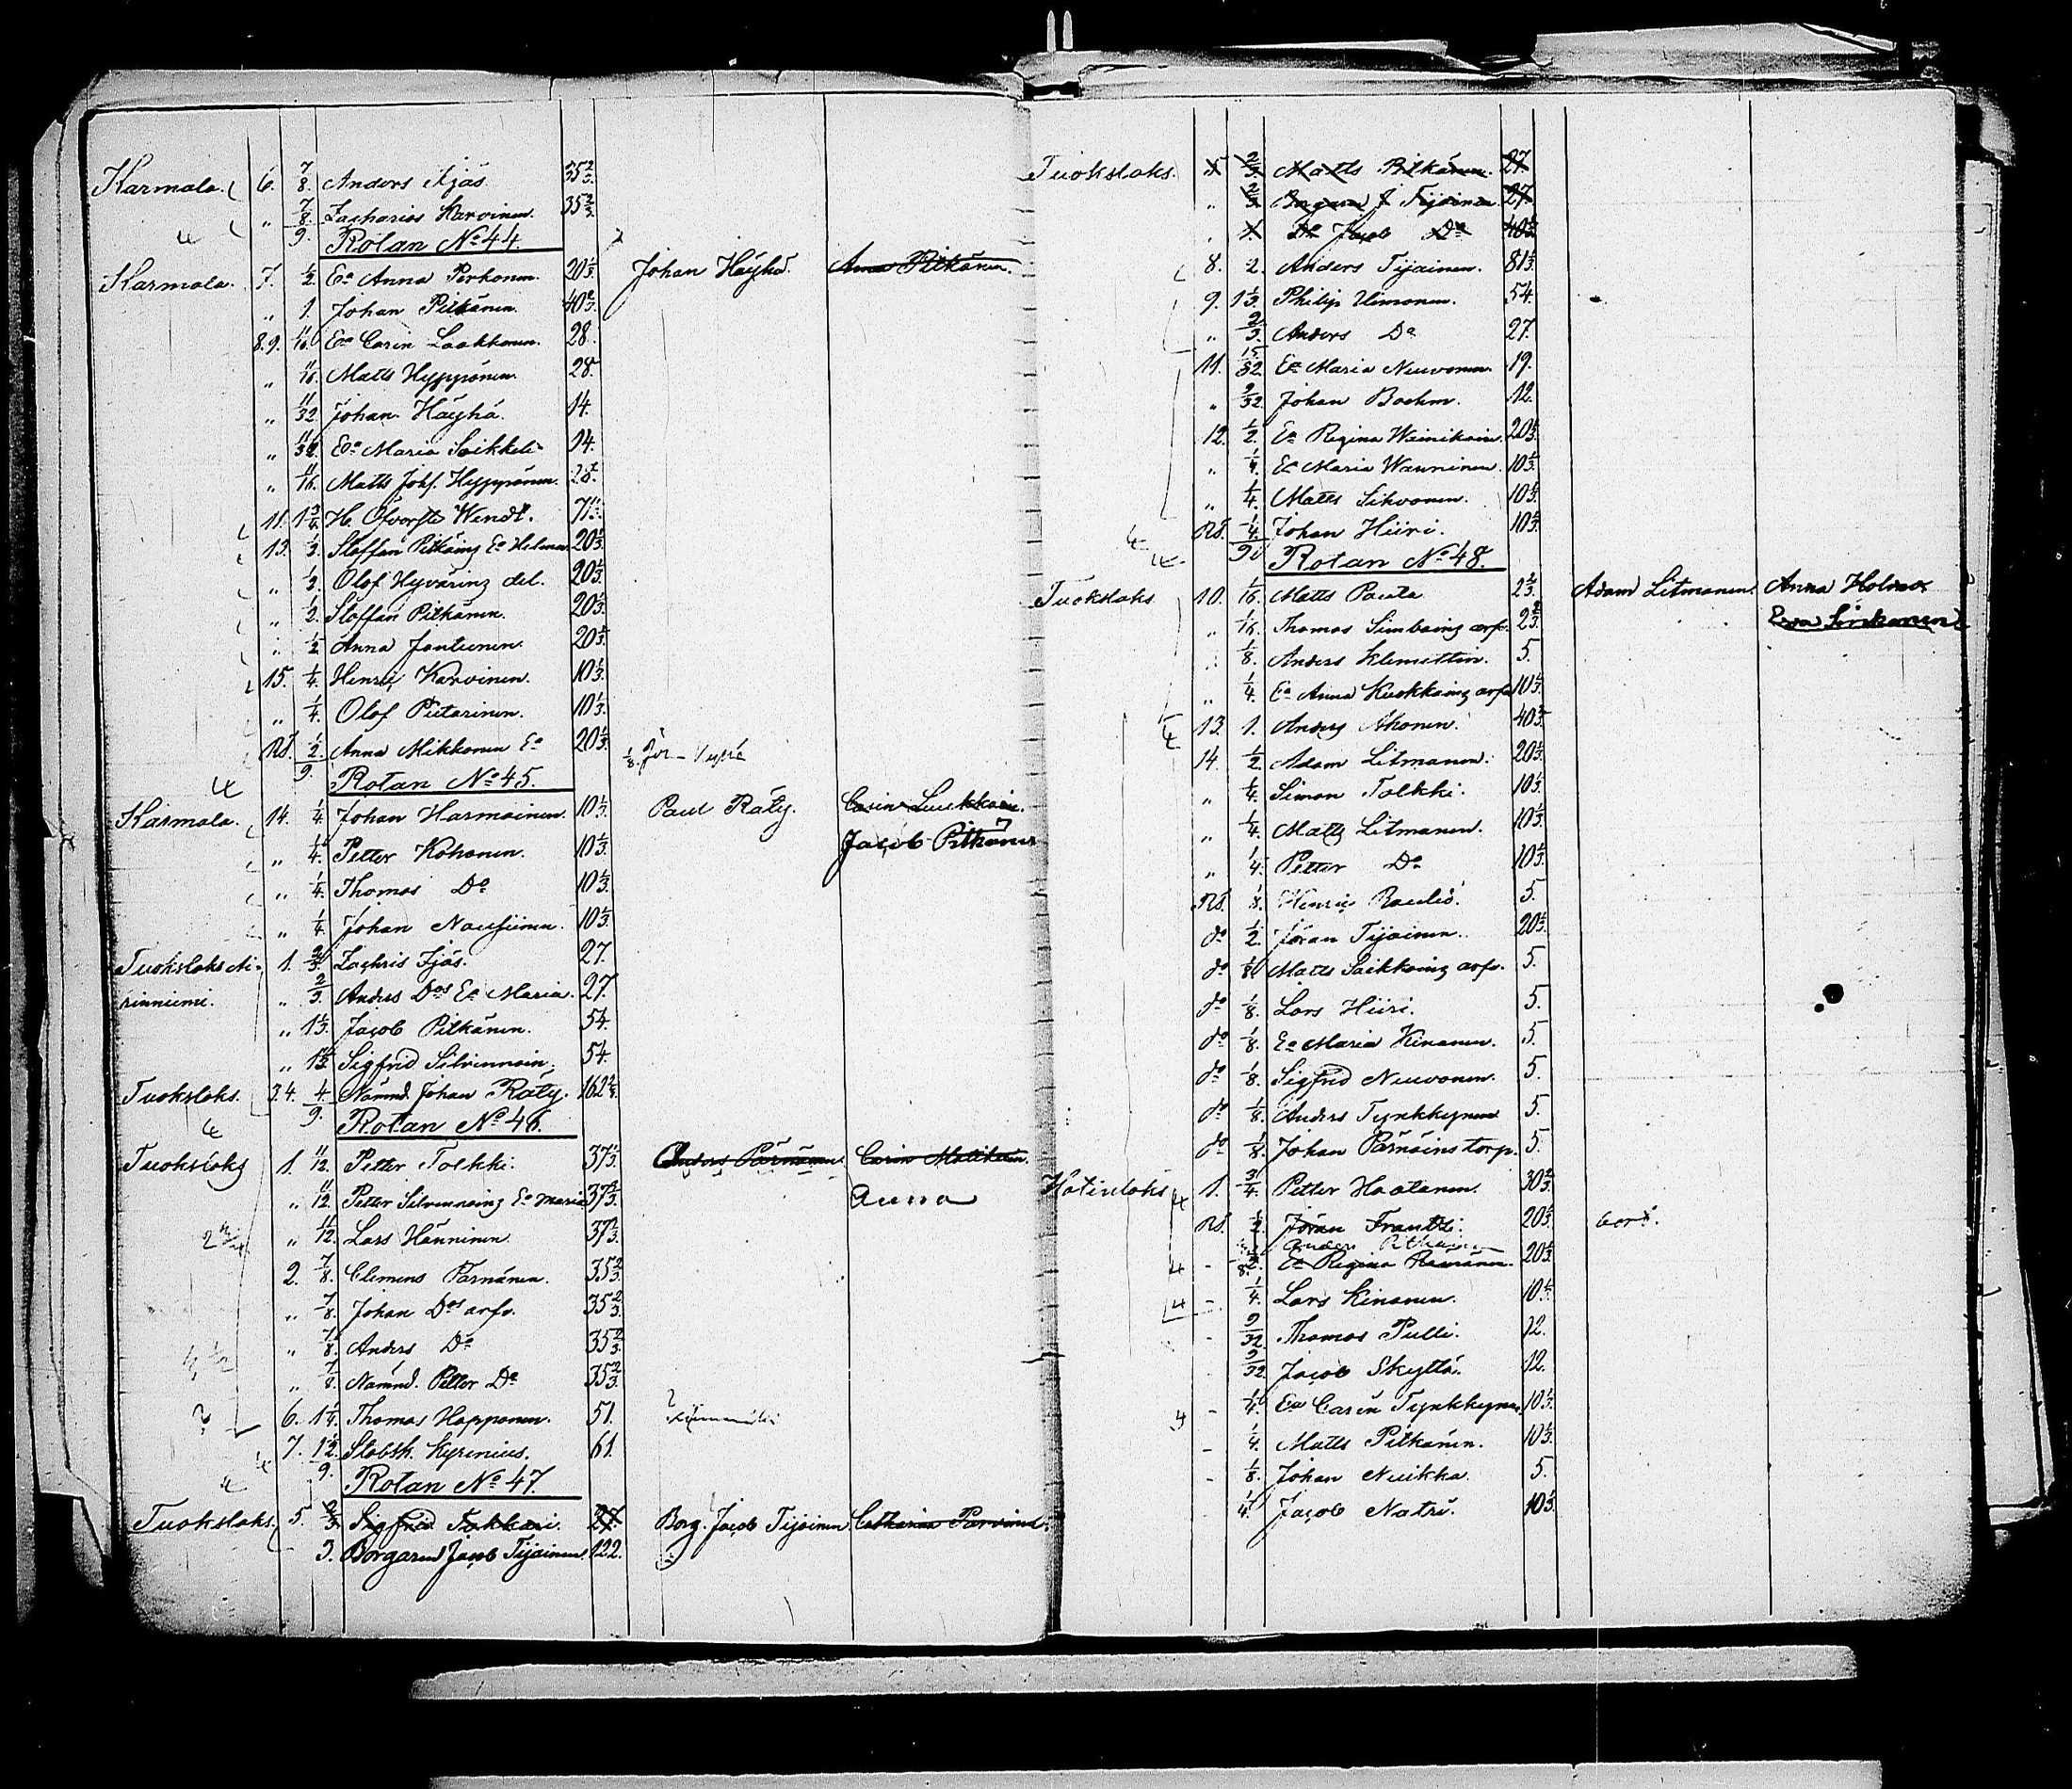 Karmala. 6. 7/8. Anders Ijäs. 35 2/3.
" 7/8. Zacharias Karvinen. 35 2/3.
9. Rotan No 44.
Karmala. 7. 1/2 Ea Anna Pirhonen. 20 1/3. Johan Häyhä. Anna Pitkänen.
" 1. Johan Pitkänen. 40 2/3.
8.9. 11/16. Ea Carin Laakkonen. 28.
" 11/16. Matts Hyppönen. 28.
" 11/32 Johan Häyhä. 14.
" 11/32. Ea Maria Soikkeli 14.
" 11/16. Matts Johs. Hyppönen. 28.
11. 1 3/4. H. Öfverste Wendt. 71 1/3.
13. 1/2. Staffan Pitkäing Ea Helena 20 1/3.
" 1/2. Olof Hyväring del. 20 1/3.
" 1/2. Staffan Pitkänen. 20 1/3.
" 1/2 Anna Jantunen. 20 1/3.
15. 1/4. Henric Karvinen. 10 1/3.
" 1/4. Olof Pietarinen. 10 1/3.
Rs. 1/2. Anna Mikkonen Ea 20 1/3. 1/8.
9. Rotan No 45.
Karmala. 14. 1/4 Johan Harmoinen. 10 1/3. Paul Räty. Carin
" 1/4. Petter Kohonen. 10 1/3. Jacob Pitkänen
" 1/4. Thomas Do 10 1/3.
" 1/4 Johan Nousiainen. 10 1/3.
Tuoksloks Ni- 1. 2/3. Zachris Ijäs. 27.
rinniemi. " 2/3. Anders Dos Ea Maria. 27.
" 1 1/3. Jacob Pitkänen. 54.
" 1 1/3 Sigfrid Silvennoin. 54.
Tuoksloks. 3.4. 4. Nämnd. Johan Räty. 162 2/3.
9. Rotan No 46.
Tuoksloks 1. 11/12. Petter Tolkki. 37 1/3. Anders Pärnänen. Carin
" 11/12. Petter Silvennoing Ea Maria 37 1/3. Anna
" 11/12. Lars Hänninen 37 1/3.
2. 7/8. Clemens Pärnänen. 35 2/3.
" 7/8. Johan Dos arfv. 35 2/3.
" 7/8. Anders Do 35 2/3.
" 7/8. Nämnd. Petter Do 35 2/3.
? 6. 1 1/4. Thomas Happonen. 51.
7. 1 1/2. Stabsk. Kyrenius. 61.
9. Rotan No 47.
Tuoksloks. 5. 2/3. Sigfrid 27. Borg. Jacob Tijainen. Catharina
3. Borgaren Jacob Tijainen. 122.
Tuoksloks. 5 2/3. Matts Pitkänen. 27.
" 2/3 Borgaren J Tijainen 27.
" 1. Do Jacob Do 40 2/3
8. 2. Anders Tijainen. 81 1/3.
9. 1 1/3. Philip Uimonen. 54.
" 2/3. Anders Do 27.
11. 15/32. Ea Maria Neuvonen. 19.
" 9/32. Johan Boehm. 12.
12. 1/2. Ea Regina Wainikain. 20 1/3.
" 1/4. Ea Maria Wanninen. 10 1/3.
" 1/4. Matts Sihvonen. 10 1/3.
Rs. 1/4. Johan Hiiri. 10 1/3.
Rotan No 48.
Tuoksloks 10. 1/16. Matts Pauta 2 2/3. Adam Litmanen. Anna
" 1/16. Thomas Simboing arfv. 2 2/3. Eva
" 1/8. Anders Klemettin. 5.
" 1/4. Ea Anna Kuokkoing arfv 10 1/3.
13. 1. Anders Ahonen. 40 2/3.
14. 1/2. Adam Litmanen. 20 1/3.
" 1/4. Simon Tolkki. 10 1/3.
" 1/4. Matts Litmanen. 10 1/3.
" 1/4. Petter Do 10 1/3.
Rs. 1/8. Henric 5.
do 1/2. Jöran Tijainen. 20 1/3.
do 1/8. Matts Soikkoing arfv. 5.
do 1/8. Lars Hiiri. 5.
do 1/8. Ea Maria Kinanen. 5.
do 1/8. Sigfrid Neuvonen. 5.
do 1/8. Anders Tynkkynen 5.
do 1/8. Johan Pärnäins torp. 5.
1. 3/4. Petter Haatanen. 30 2/3.
Rs. 1/2. Jöran Frantti. 20 1/3.
Anders Pitkänen
- Ea Regina 20 1/3.
- 1/4. Lars Kinanen. 10 1/3.
- 9/32 Thomas Pulli. 12.
9/32 Jacob Skyttä. 12.
- 1/4. Ea Carin Tynkkynen. 10 1/3.
- 1/4. Matts Pitkänen. 10 1/3.
- 1/8. Johan Nuikka. 5.
1/4. Jacob Natri. 10 1/3.